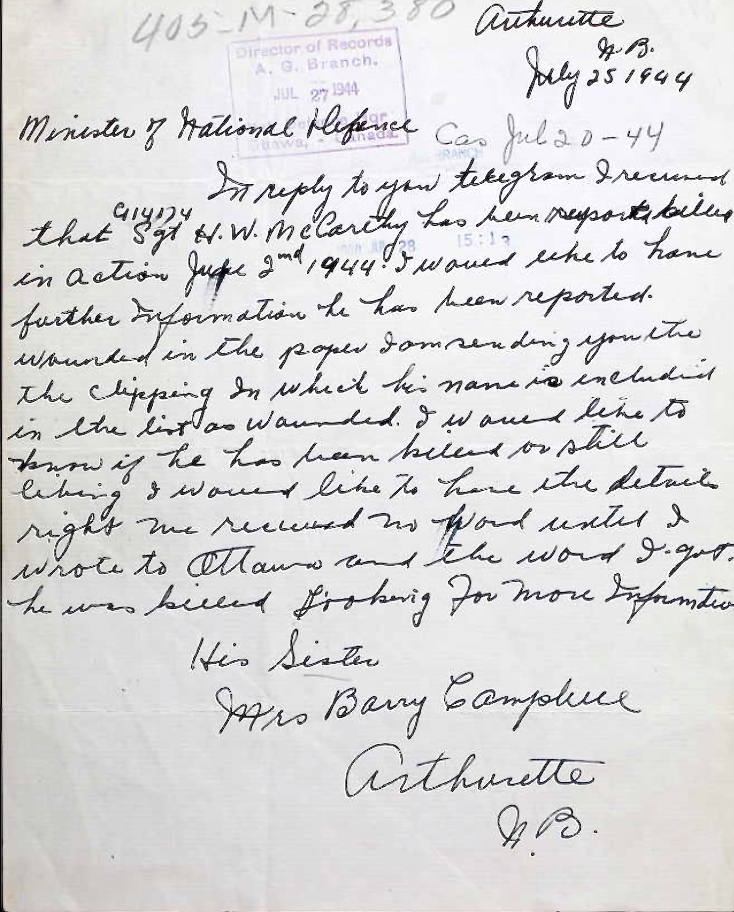 405-M-28,380
Arthurette
N.B.
July 25 1944
Director of Records
A. G. Branch.
JUL 27 1944
Ottawa, - Canada.
Minister of National Defence
Cas Jul 20-44
BRANCH
In reply to your telegram I received
G14174
that Sgt H.W. McCarthy has been reported killed
28 15:13
in action June 2nd 1944. I would like to have
further Information he has been reported.
wounded in the paper I am sending you the
the clipping In which his name is included
in the list as wounded. I would like to
know if he has been killed or still
living I would like to have the details
right we received no word until I
wrote to Ottawa and the word I got.
he was killed Looking For more Information
His Sister
Mrs Barry Campbell
Arthurette
N.B.